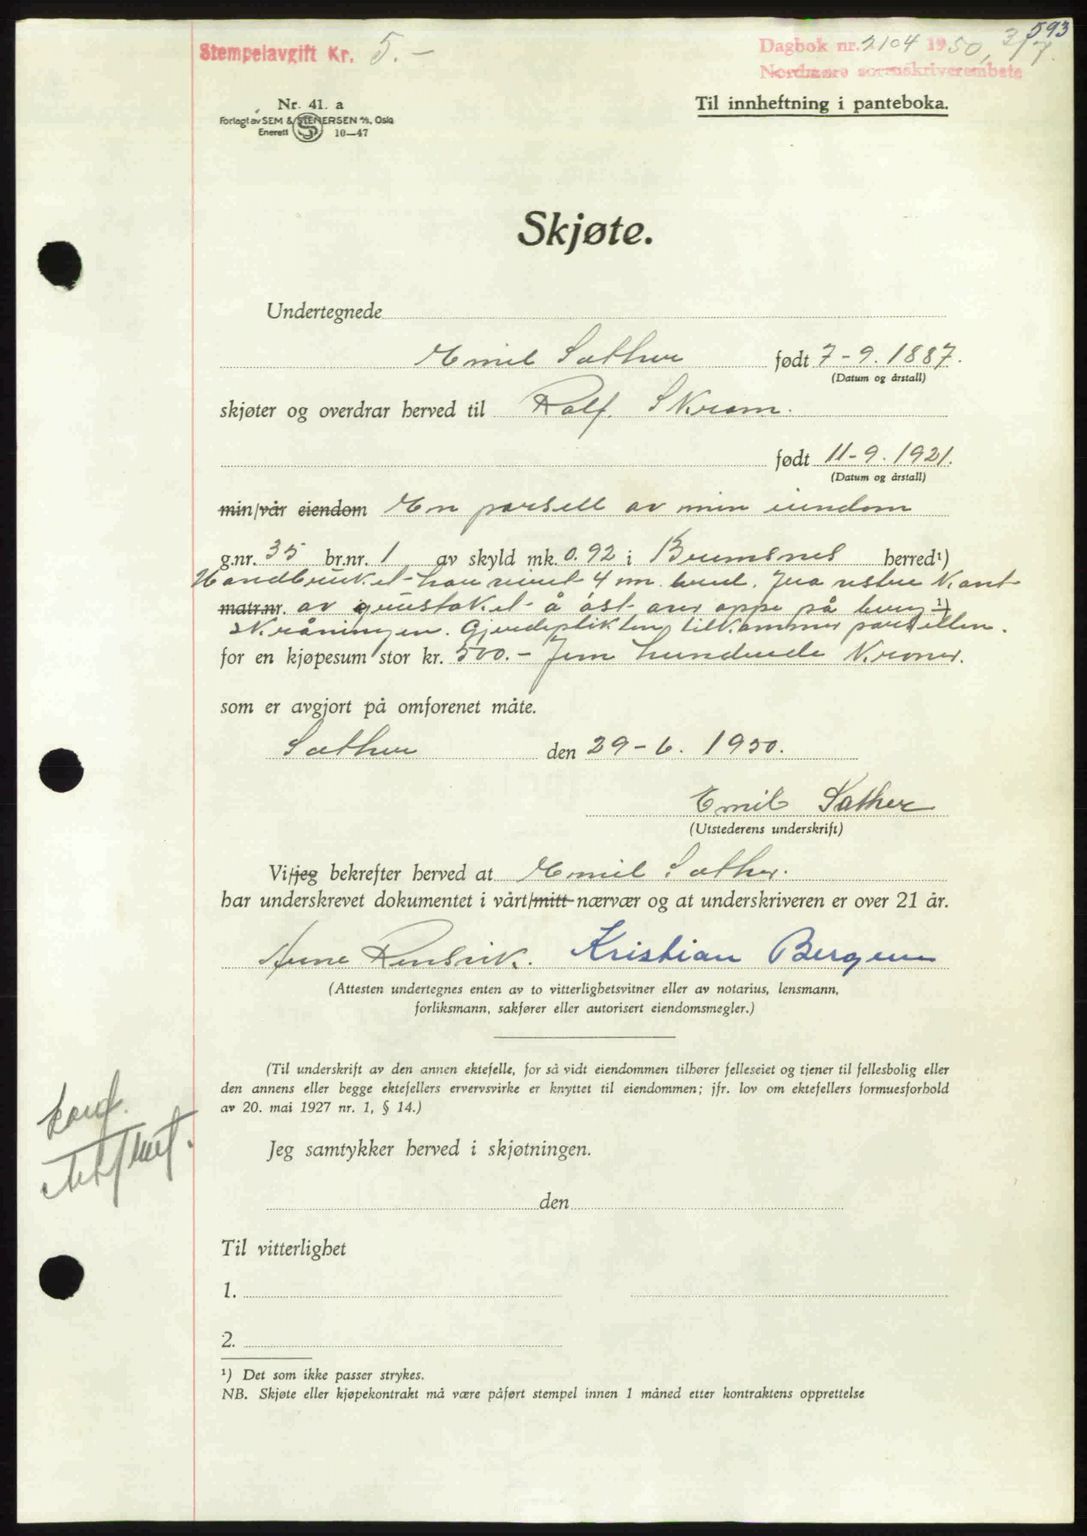 593
Stempelavgift Kr. 5.-
Dagbok nr. 2104 1950, 3/7.
Nordmøre sorenskriverembete
Nr. 41. a
Forlagt av SEM & STENERSEN A/S, Oslo
Enerett S 10—47
Til innheftning i panteboka.
Skjøte.
Undertegnede
Emil Sather født 7-9. 1887.
(Datum og årstall)
skjøter og overdrar herved til Ralf. Skram.
født 11-9. 1921.
(Datum og årstall)
min/vår eiendom En parsell av min eiendom
g.nr. 35 br.nr. 1 av skyld mk. 0.92 i Bremsnes herred¹)
4 m. fra Kant
matr.nr. av å øst oppe på ¹)
Skråningen. Gjerdeplikten tilkommer parsellen.
for en kjøpesum stor kr. 500.- Fem hundrede Kroner.
som er avgjort på omforenet måte.
Sather den 29-6. 1950.
Emil Sather
(Utstederens underskrift)
Vi/jeg bekrefter herved at Emil Sather.
har underskrevet dokumentet i vårt/mitt nærvær og at underskriveren er over 21 år.
Anne Kristian Bergem
(Attesten undertegnes enten av to vitterlighetsvitner eller av notarius, lensmann,
forliksmann, sakfører eller autorisert eiendomsmegler.)
(Til underskrift av den annen ektefelle, for så vidt eiendommen tilhører felleseiet og tjener til fellesbolig eller
den annens eller begge ektefellers ervervsvirke er knyttet til eiendommen; jfr. lov om ektefellers formuesforhold
av 20. mai 1927 nr. 1, § 14.)
Jeg samtykker herved i skjøtningen.
den
Til vitterlighet
1.
2.
¹) Det som ikke passer strykes.
NB. Skjøte eller kjøpekontrakt må være påført stempel innen 1 måned etter kontraktens opprettelse